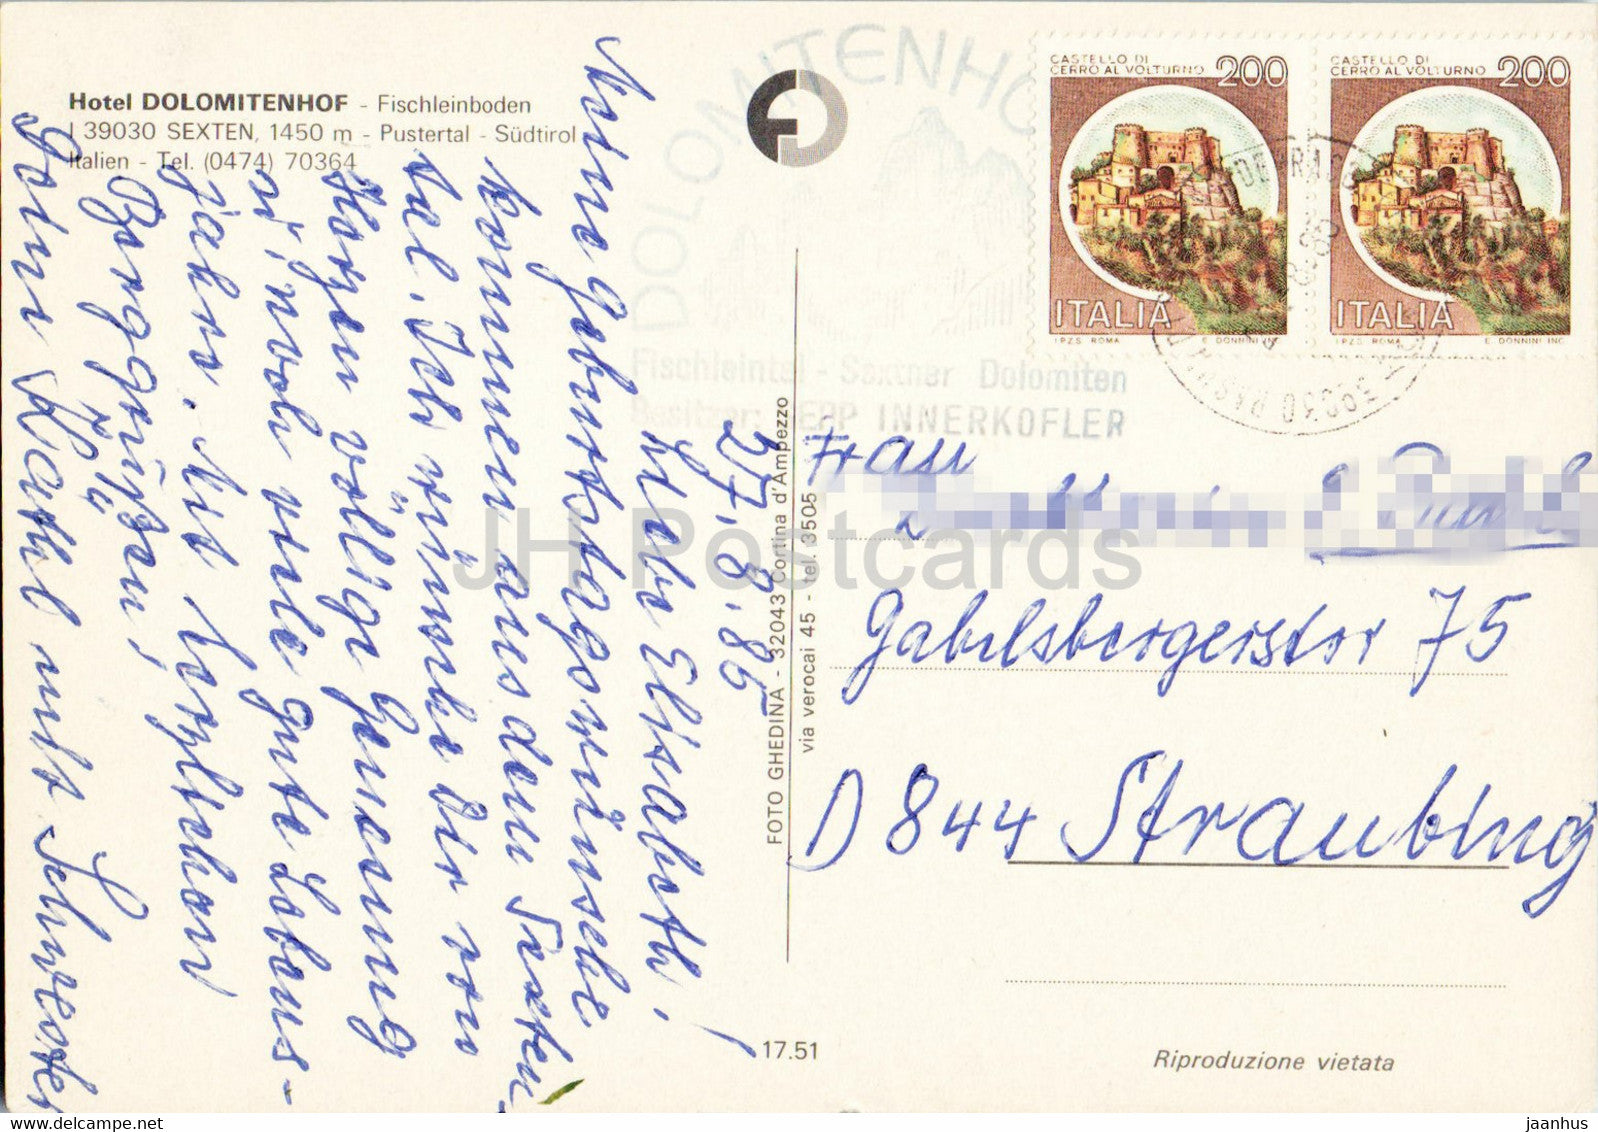 Hotel DOLOMITENHOF - Fischleinboden
I 39030 SEXTEN, 1450 m - Pustertal - Südtirol
Italien - Tel. (0474) 70364
27.8.85
Liebe Elisabeth!
Meine Geburtstagswünsche
kommen aus dem Sexten-
tal. Ich wünsche Dir von
Herzen völlige Genesung
u. noch viele gute Lebens-
jahre. Mit herzlichen
Berggrüßen,
Deine Kathl mit Schwester
FOTO GHEDINA - 32043 Cortina d'Ampezzo
via verocai 45 - tel. 3505
17.51
DOLOMITENHO
Fischleintal - Sextner Dolomiten
Besitzer: SEPP INNERKOFLER
CASTELLO DI
CERRO AL VOLTURNO 200
ITALIA
I.P.Z.S. ROMA E. DONNINI INC.
CASTELLO DI
CERRO AL VOLTURNO 200
ITALIA
I.P.Z.S. ROMA E. DONNINI INC.
Frau
Gabelsbergerstr 75
D 844 Straubing
Riproduzione vietata
JH Postcards
www.delcampe.net
jaanhus